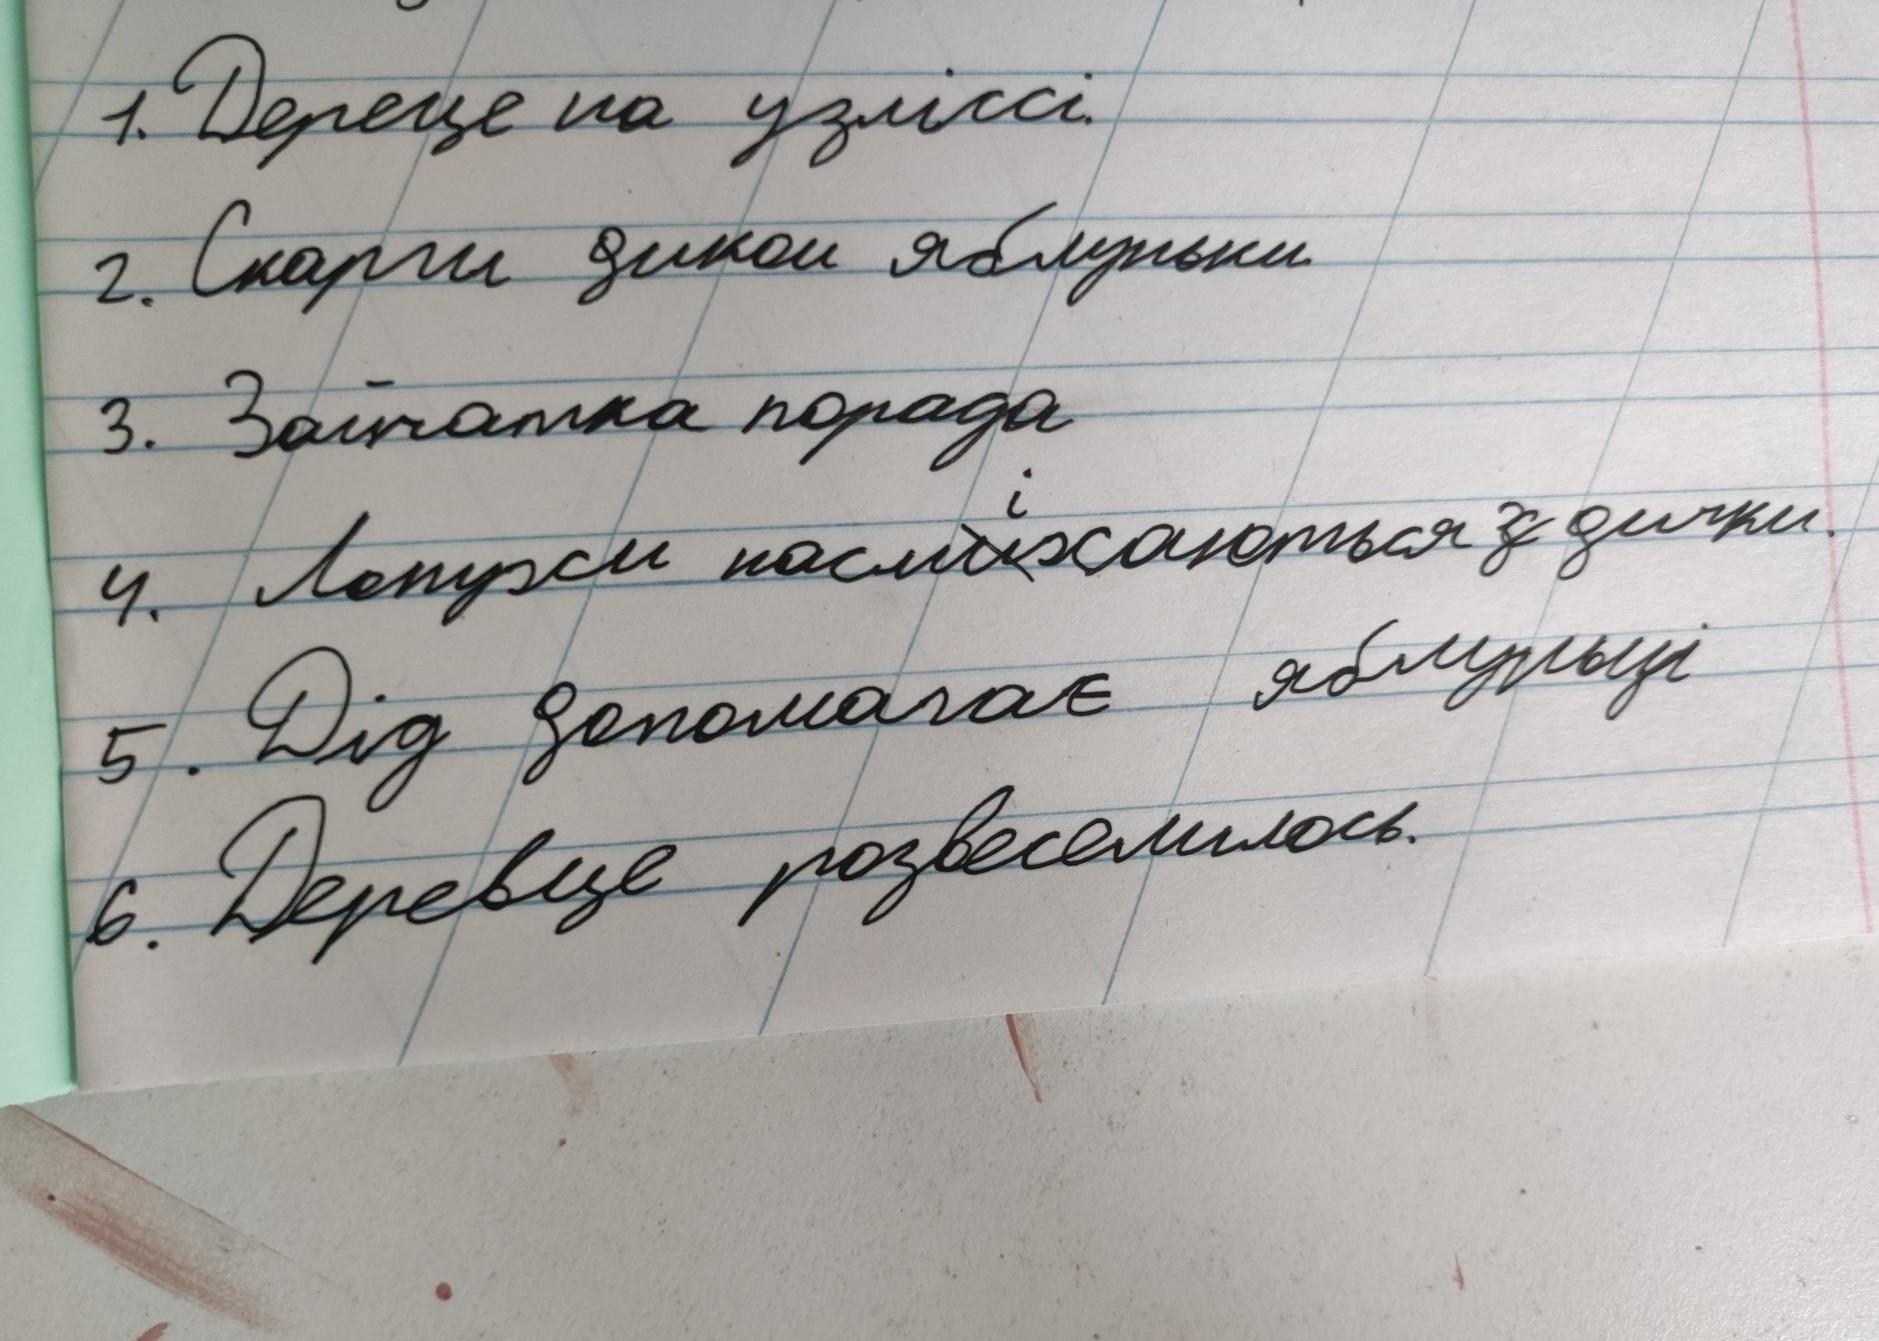 1. Дереце на узліссі.
2. Скарги дикои яблуньки
3. Зайчатка порада
4. Лопухи насміхаються з дички.
5. Дід допомагає яблуньці
6. Деревце розвеселилось.